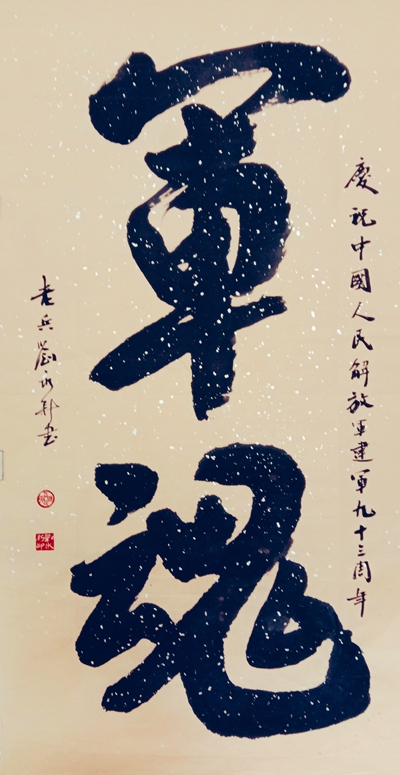 慶祝中國人民解放軍建軍九十三周年
軍魂
老兵劉永新書